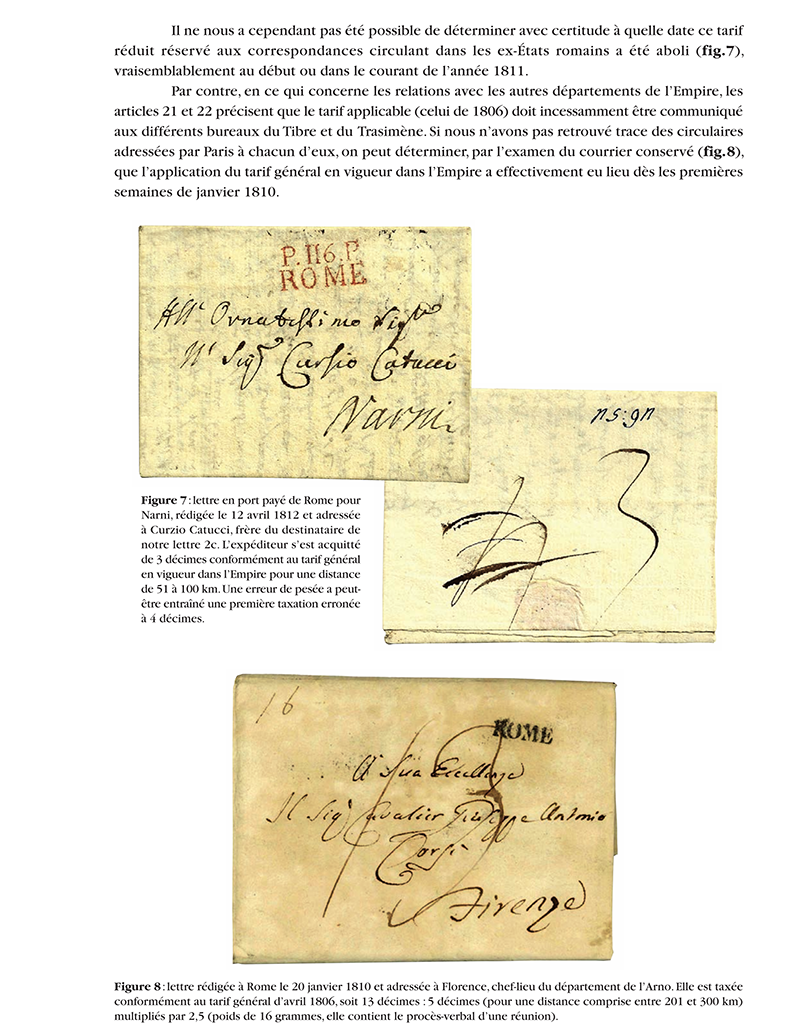 Il ne nous a cependant pas été possible de déterminer avec certitude à quelle date ce tarif
réduit réservé aux correspondances circulant dans les ex-États romains a été aboli (fig.7),
vraisemblablement au début ou dans le courant de l'année 1811.
Par contre, en ce qui concerne les relations avec les autres départements de l'Empire, les
articles 21 et 22 précisent que le tarif applicable (celui de 1806) doit incessamment être communiqué
aux différents bureaux du Tibre et du Trasimène. Si nous n'avons pas retrouvé trace des circulaires
adressées par Paris à chacun d'eux, on peut déterminer, par l'examen du courrier conservé (fig.8),
que l'application du tarif général en vigueur dans l'Empire a effectivement eu lieu dès les premières
semaines de janvier 1810.
P.116.P.
ROME
All' Ornatissimo Sig
Il Sig Cursio Catucci
Narni
3
Figure 7 : lettre en port payé de Rome pour
Narni, rédigée le 12 avril 1812 et adressée
à Curzio Catucci, frère du destinataire de
notre lettre 2c. L'expéditeur s'est acquitté
de 3 décimes conformément au tarif général
en vigueur dans l'Empire pour une distance
de 51 à 100 km. Une erreur de pesée a peut-
être entraîné une première taxation erronée
à 4 décimes.
16
ROME
A Sua Eccellenza
Il Sig Cavalier Giuseppe Antonio
Corsi
Firenze
Figure 8 : lettre rédigée à Rome le 20 janvier 1810 et adressée à Florence, chef-lieu du département de l'Arno. Elle est taxée
conformément au tarif général d'avril 1806, soit 13 décimes : 5 décimes (pour une distance comprise entre 201 et 300 km)
multipliés par 2,5 (poids de 16 grammes, elle contient le procès-verbal d'une réunion).